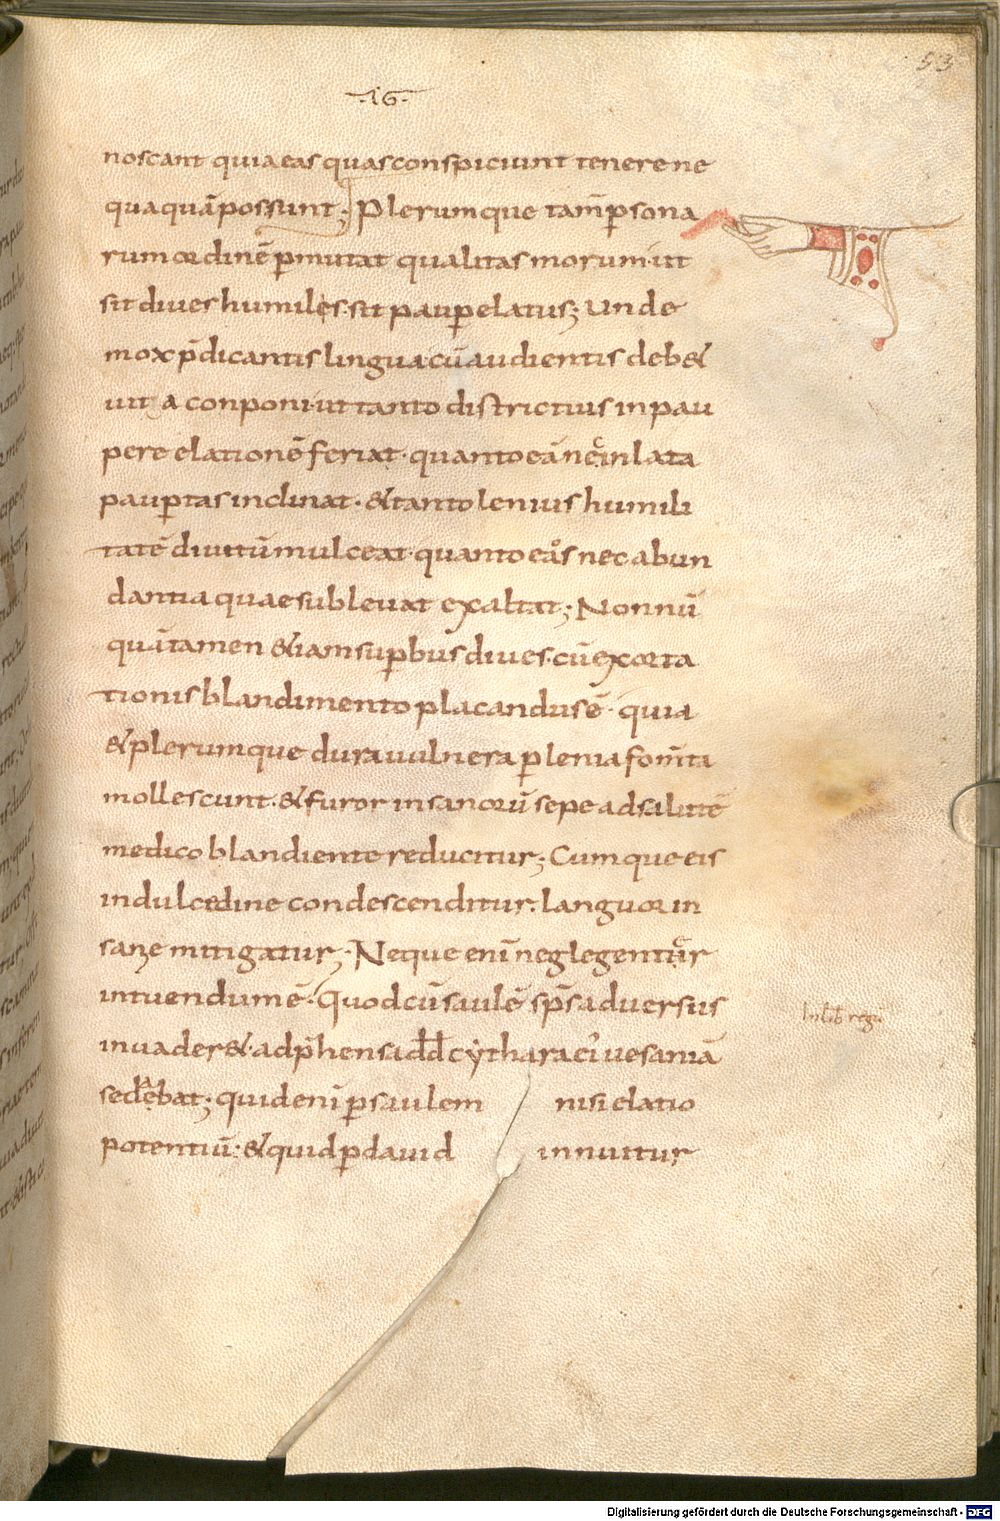 53
·16·
noscant quia eas quas conspiciunt tenere ne
quaquā possunt; Plerumque tam̄ p̱sona
rum ordinē p̱mutat qualitas morum· ut
sit dives humiles· sit paup̱ elatus; Unde
mox p̄dicantis lingua cū audientis deb&
uita conponi· ut tanto districtius in pau
pere elationē feriat· quanto eā nec inlata
paup̱tas inclinat· & tanto lenius humili
tatē divitū mulceat· quanto eos nec abun
dantia quae sublevat exaltat; Nonnū
quā tamen &iam sup̱bus dives· cū exorta
tionis blandimento placandus ē· quia
& plerumque dura vulnera p̱ lenia fom̄ta
mollescunt· & furor insanorū sepe ad salutē
medico blandiente reducitur; Cumque eis
in dulcedine condescenditur· languor in
sanȩ mitigatur; Neque enī neglegenter
intuendum ē· Quod cū saulē sp̄s adversus
invader&· adp̄hensa dd̄ cythara ei' vesaniā
sedabat; quid enī p̱ saulem nisi elatio
potentiū· & quid p̱ david innuitur
In lib regū
Digitalisierung gefördert durch die Deutsche Forschungsgemeinschaft - DFG